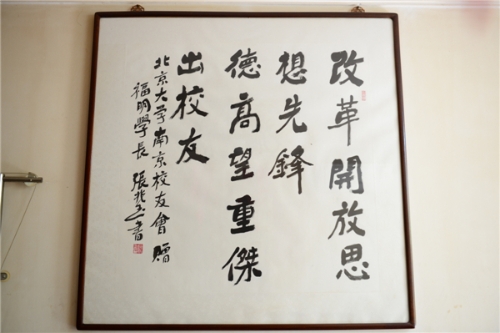 改革開放思
想先鋒
德高望重傑
出校友
北京大学南京校友會贈
福明學長 張 書